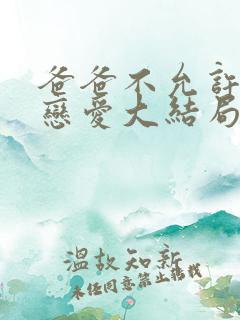 爸爸不允許
戀愛大結局
溫故知新
未經同意禁止轉載